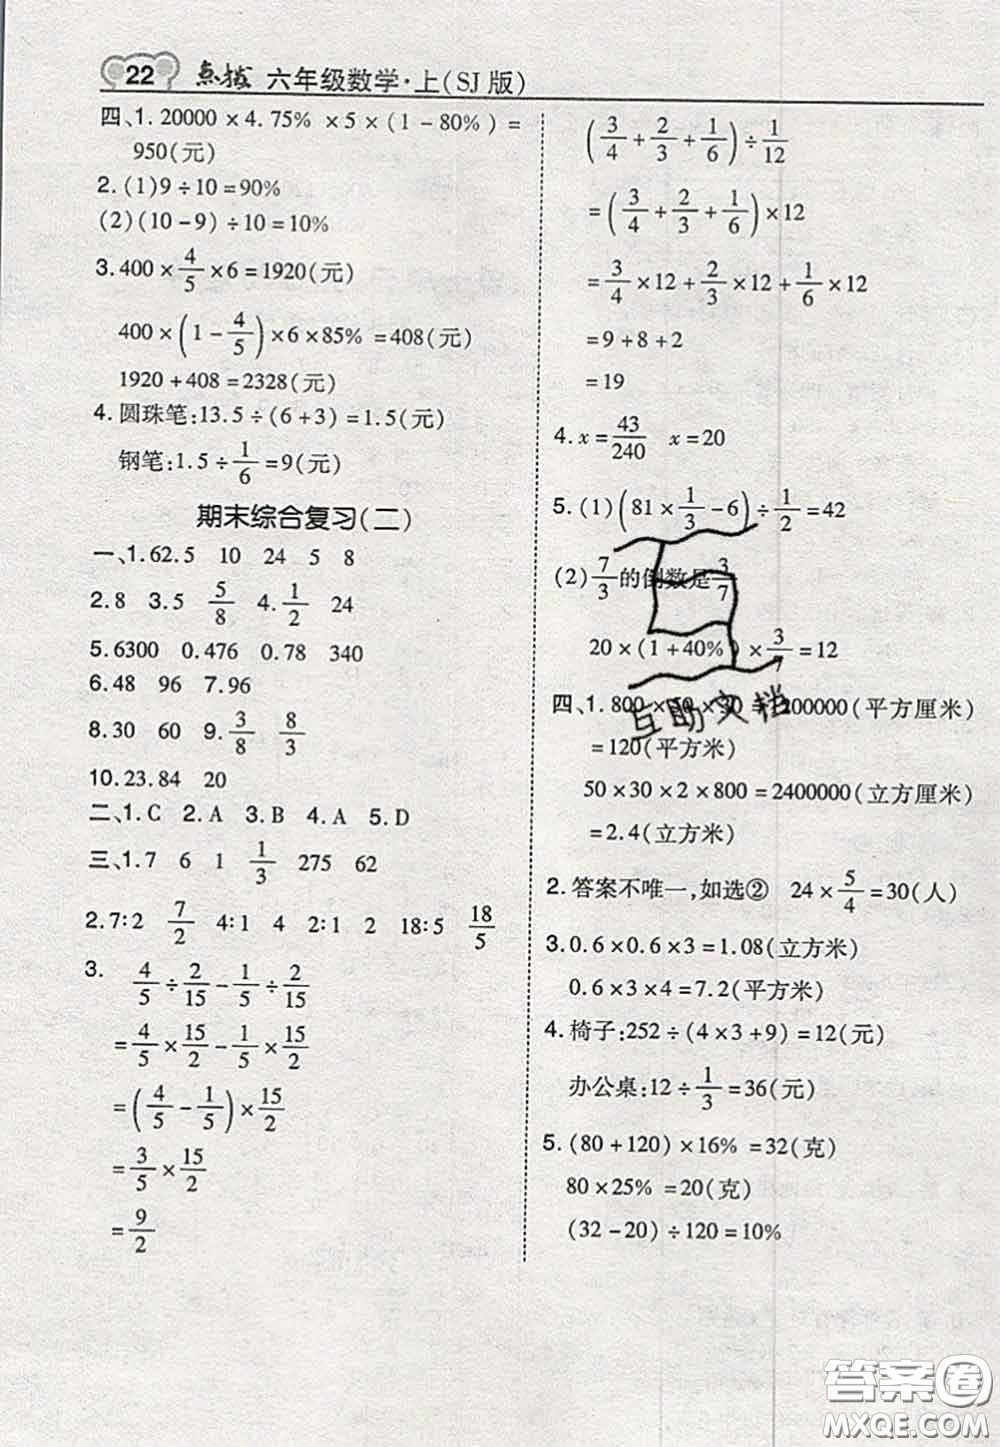 22 点拨 六年级数学·上(SJ版)
四、1. 20000 × 4.75% × 5 × (1 - 80%) =
950(元)
2. (1) 9 ÷ 10 = 90%
(2) (10 - 9) ÷ 10 = 10%
3. 400 × 4/5 × 6 = 1920(元)
400 × (1 - 4/5) × 6 × 85% = 408(元)
1920 + 408 = 2328(元)
4. 圆珠笔: 13.5 ÷ (6 + 3) = 1.5(元)
钢笔: 1.5 ÷ 1/6 = 9(元)
期末综合复习(二)
一、1. 62.5 10 24 5 8
2. 8 3. 5 5/8 4. 1/2 24
5. 6300 0.476 0.78 340
6. 48 96 7. 96
8. 30 60 9. 3/8 8/3
10. 23.84 20
二、1. C 2. A 3. B 4. A 5. D
三、1. 7 6 1 1/3 275 62
2. 7∶2 7/2 4∶1 4 2∶1 2 18∶5 18/5
3. 4/5 ÷ 2/15 - 1/5 ÷ 2/15
= 4/5 × 15/2 - 1/5 × 15/2
= (4/5 - 1/5) × 15/2
= 3/5 × 15/2
= 9/2
(3/4 + 2/3 + 1/6) ÷ 1/12
= (3/4 + 2/3 + 1/6) × 12
= 3/4 × 12 + 2/3 × 12 + 1/6 × 12
= 9 + 8 + 2
= 19
4. x = 43/240 x = 20
5. (1) (81 × 1/3 - 6) ÷ 1/2 = 42
(2) 7/3 的倒数是 3/7
20 × (1 + 40%) × 3/7 = 12
四、1. 800 × 50 × 30 = 1200000(平方厘米)
= 120(平方米)
50 × 30 × 2 × 800 = 2400000(立方厘米)
= 2.4(立方米)
2. 答案不唯一,如选② 24 × 5/4 = 30(人)
3. 0.6 × 0.6 × 3 = 1.08(立方米)
0.6 × 3 × 4 = 7.2(平方米)
4. 椅子: 252 ÷ (4 × 3 + 9) = 12(元)
办公桌: 12 ÷ 1/3 = 36(元)
5. (80 + 120) × 16% = 32(克)
80 × 25% = 20(克)
(32 - 20) ÷ 120 = 10%
互助文档
答案圈
MXQE.COM